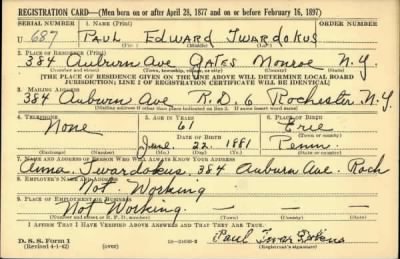 REGISTRATION CARD—(Men born on or after April 28, 1877 and on or before February 16, 1897)
SERIAL NUMBER 1. NAME (Print) ORDER NUMBER
U 687 PAUL EDWARD TWARDOKUS
(First) (Middle) (Last)
2. PLACE OF RESIDENCE (Print)
384 Auburn Ave GATES Monroe N.Y.
(Number and street) (Town, township, village, or city) (County) (State)
[THE PLACE OF RESIDENCE GIVEN ON THE LINE ABOVE WILL DETERMINE LOCAL BOARD
JURISDICTION; LINE 2 OF REGISTRATION CERTIFICATE WILL BE IDENTICAL]
3. MAILING ADDRESS
384 Auburn Ave R.D. 6 Rochester N.Y.
[Mailing address if other than place indicated on line 2. If same insert word same]
4. TELEPHONE 5. AGE IN YEARS 6. PLACE OF BIRTH
None 61 Erie
DATE OF BIRTH (Town or county)
June 22 1881 Penn.
(Exchange) (Number) (Mo.) (Day) (Yr.) (State or country)
7. NAME AND ADDRESS OF PERSON WHO WILL ALWAYS KNOW YOUR ADDRESS
Anna Twardokus, 384 Auburn Ave. Roch
8. EMPLOYER'S NAME AND ADDRESS
Not Working
9. PLACE OF EMPLOYMENT OR BUSINESS
Not Working. — — —
(Number and street or R. F. D. number) (Town) (County) (State)
I AFFIRM THAT I HAVE VERIFIED ABOVE ANSWERS AND THAT THEY ARE TRUE.
D. S. S. Form 1
(Revised 4-1-42) (over) Paul
(Registrant's signature)